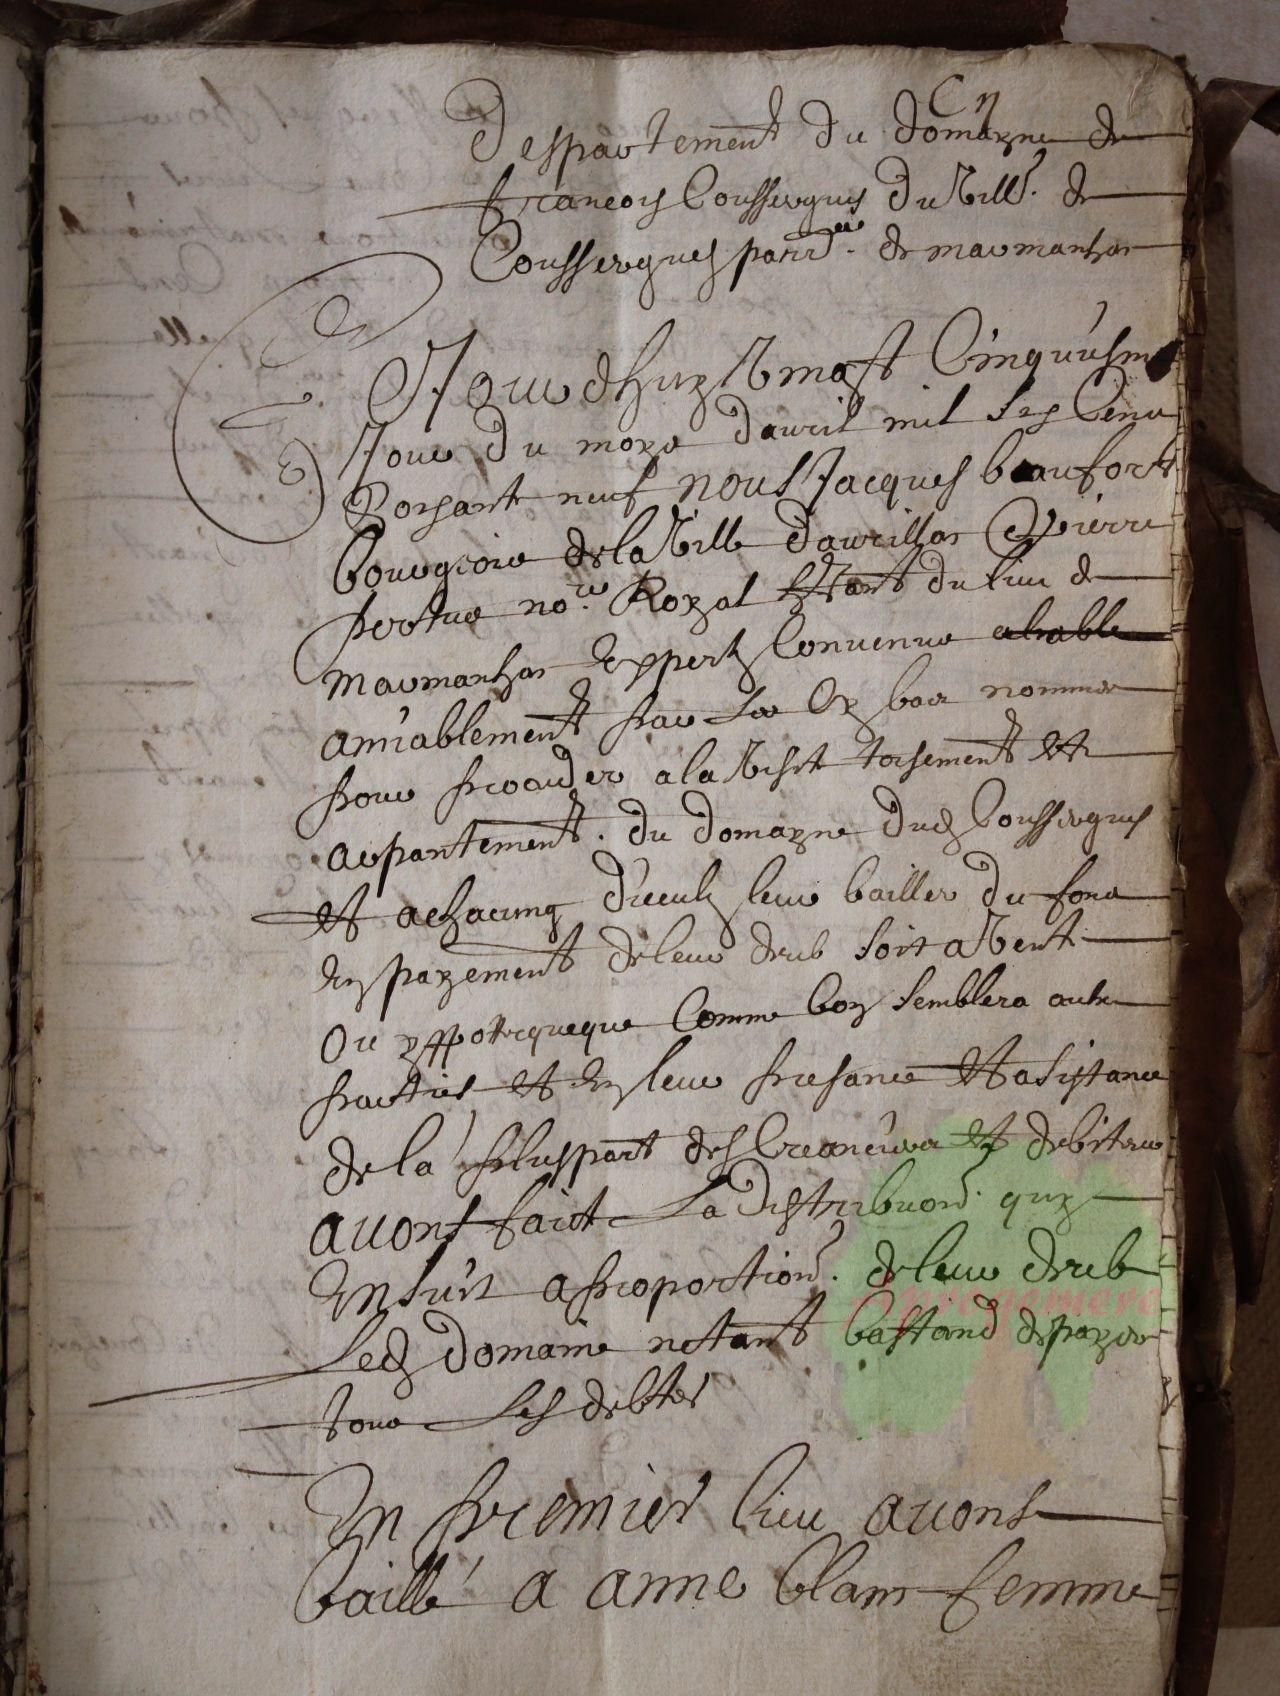 Cn
Despartement du domayne de
francois Coussergues du Vill. de
Coussergues parr. de marmanhac
Jourdhuy Vingt Cinquiesme
Jour du moys dauril mil six Cens
soixante neuf nous Jacques beaufort
bourgeois de la Ville daurillac Pierre
pertus nore Royal habitant du lieu de
marmanhac Expertz Convenus
amiablement par les Cy bas nommes
pour proceder a la Visite toisement et
arpantement du domayne dud Coussergues
et a chacung diceulx leur bailler du fons
En payement de leur deub soit a Vente
Ou ypottecque comme bon semblera aux
parties et En leur presance et asistance
de la pluspart des Creanciers et debiteur
avons fait La distribuon quy
Ensuit a proportion de leur deub
Led domaine nestant bastand de payer
tous Les debtes
En premier lieu avons
baillé a anne blanc femme
Aprogemere